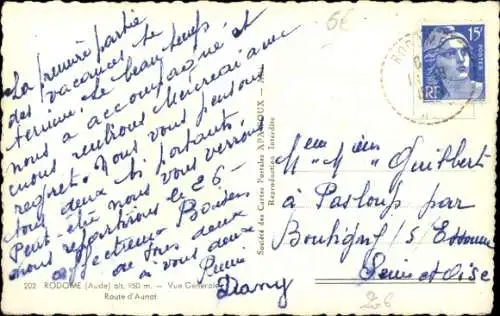 La première partie
des vacances se
termine. Le beau temps
nous a accompagné et
nous rentrons Mercredi avec
regret. Nous vous pensons
tous deux bi portants,
Peut-être nous vous verrons
nous repartirons le 26 -
affectueux Baisers
de tous deux
à vous deux
Dany
202 RODOME (Aude) alt. 950 m. — Vue Générale
Route d'Aunat
Société des Cartes Postales APA-POUX
Reproduction Interdite
6€
15F
POSTES
RF
Guilbert
à Pasloup par
Boutigny S/ Essonne
Seine et Oise
206